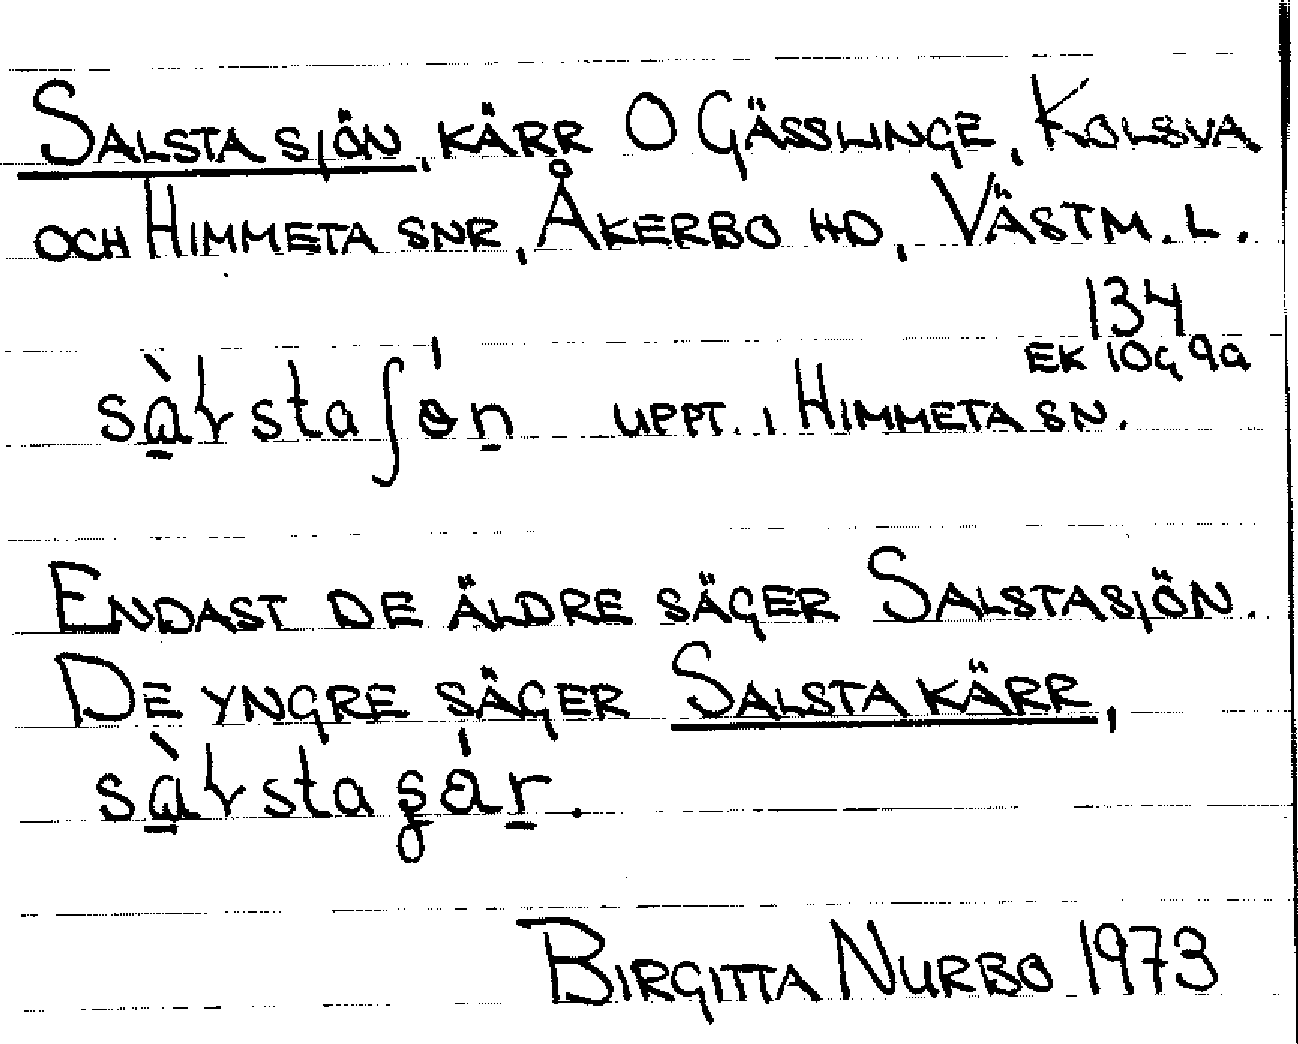 Salsta sjön, kärr O Gässlinge, Kolsva
och Himmeta snr, Åkerbo hd, Västm. l.
134
EK 10G 9a
uppt. i Himmeta sn.
Endast de äldre säger Salstasjön.
De yngre säger Salsta kärr,
Birgitta Nurbo 1973